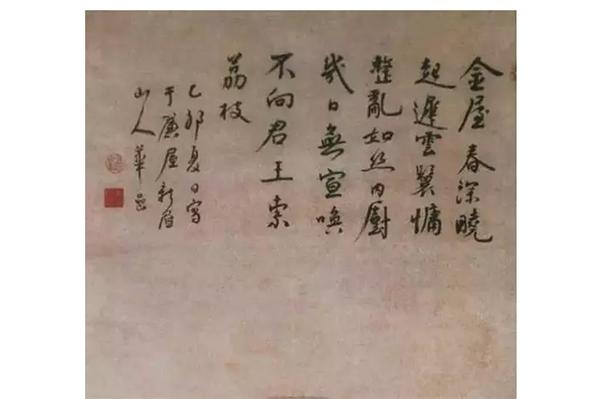 金屋春深曉
起遲雲鬟慵
整亂如絲內廚
幾日無宣喚
不向君王索
荔枝
乙卯夏日寫
于廣屋新居
山人華嵒